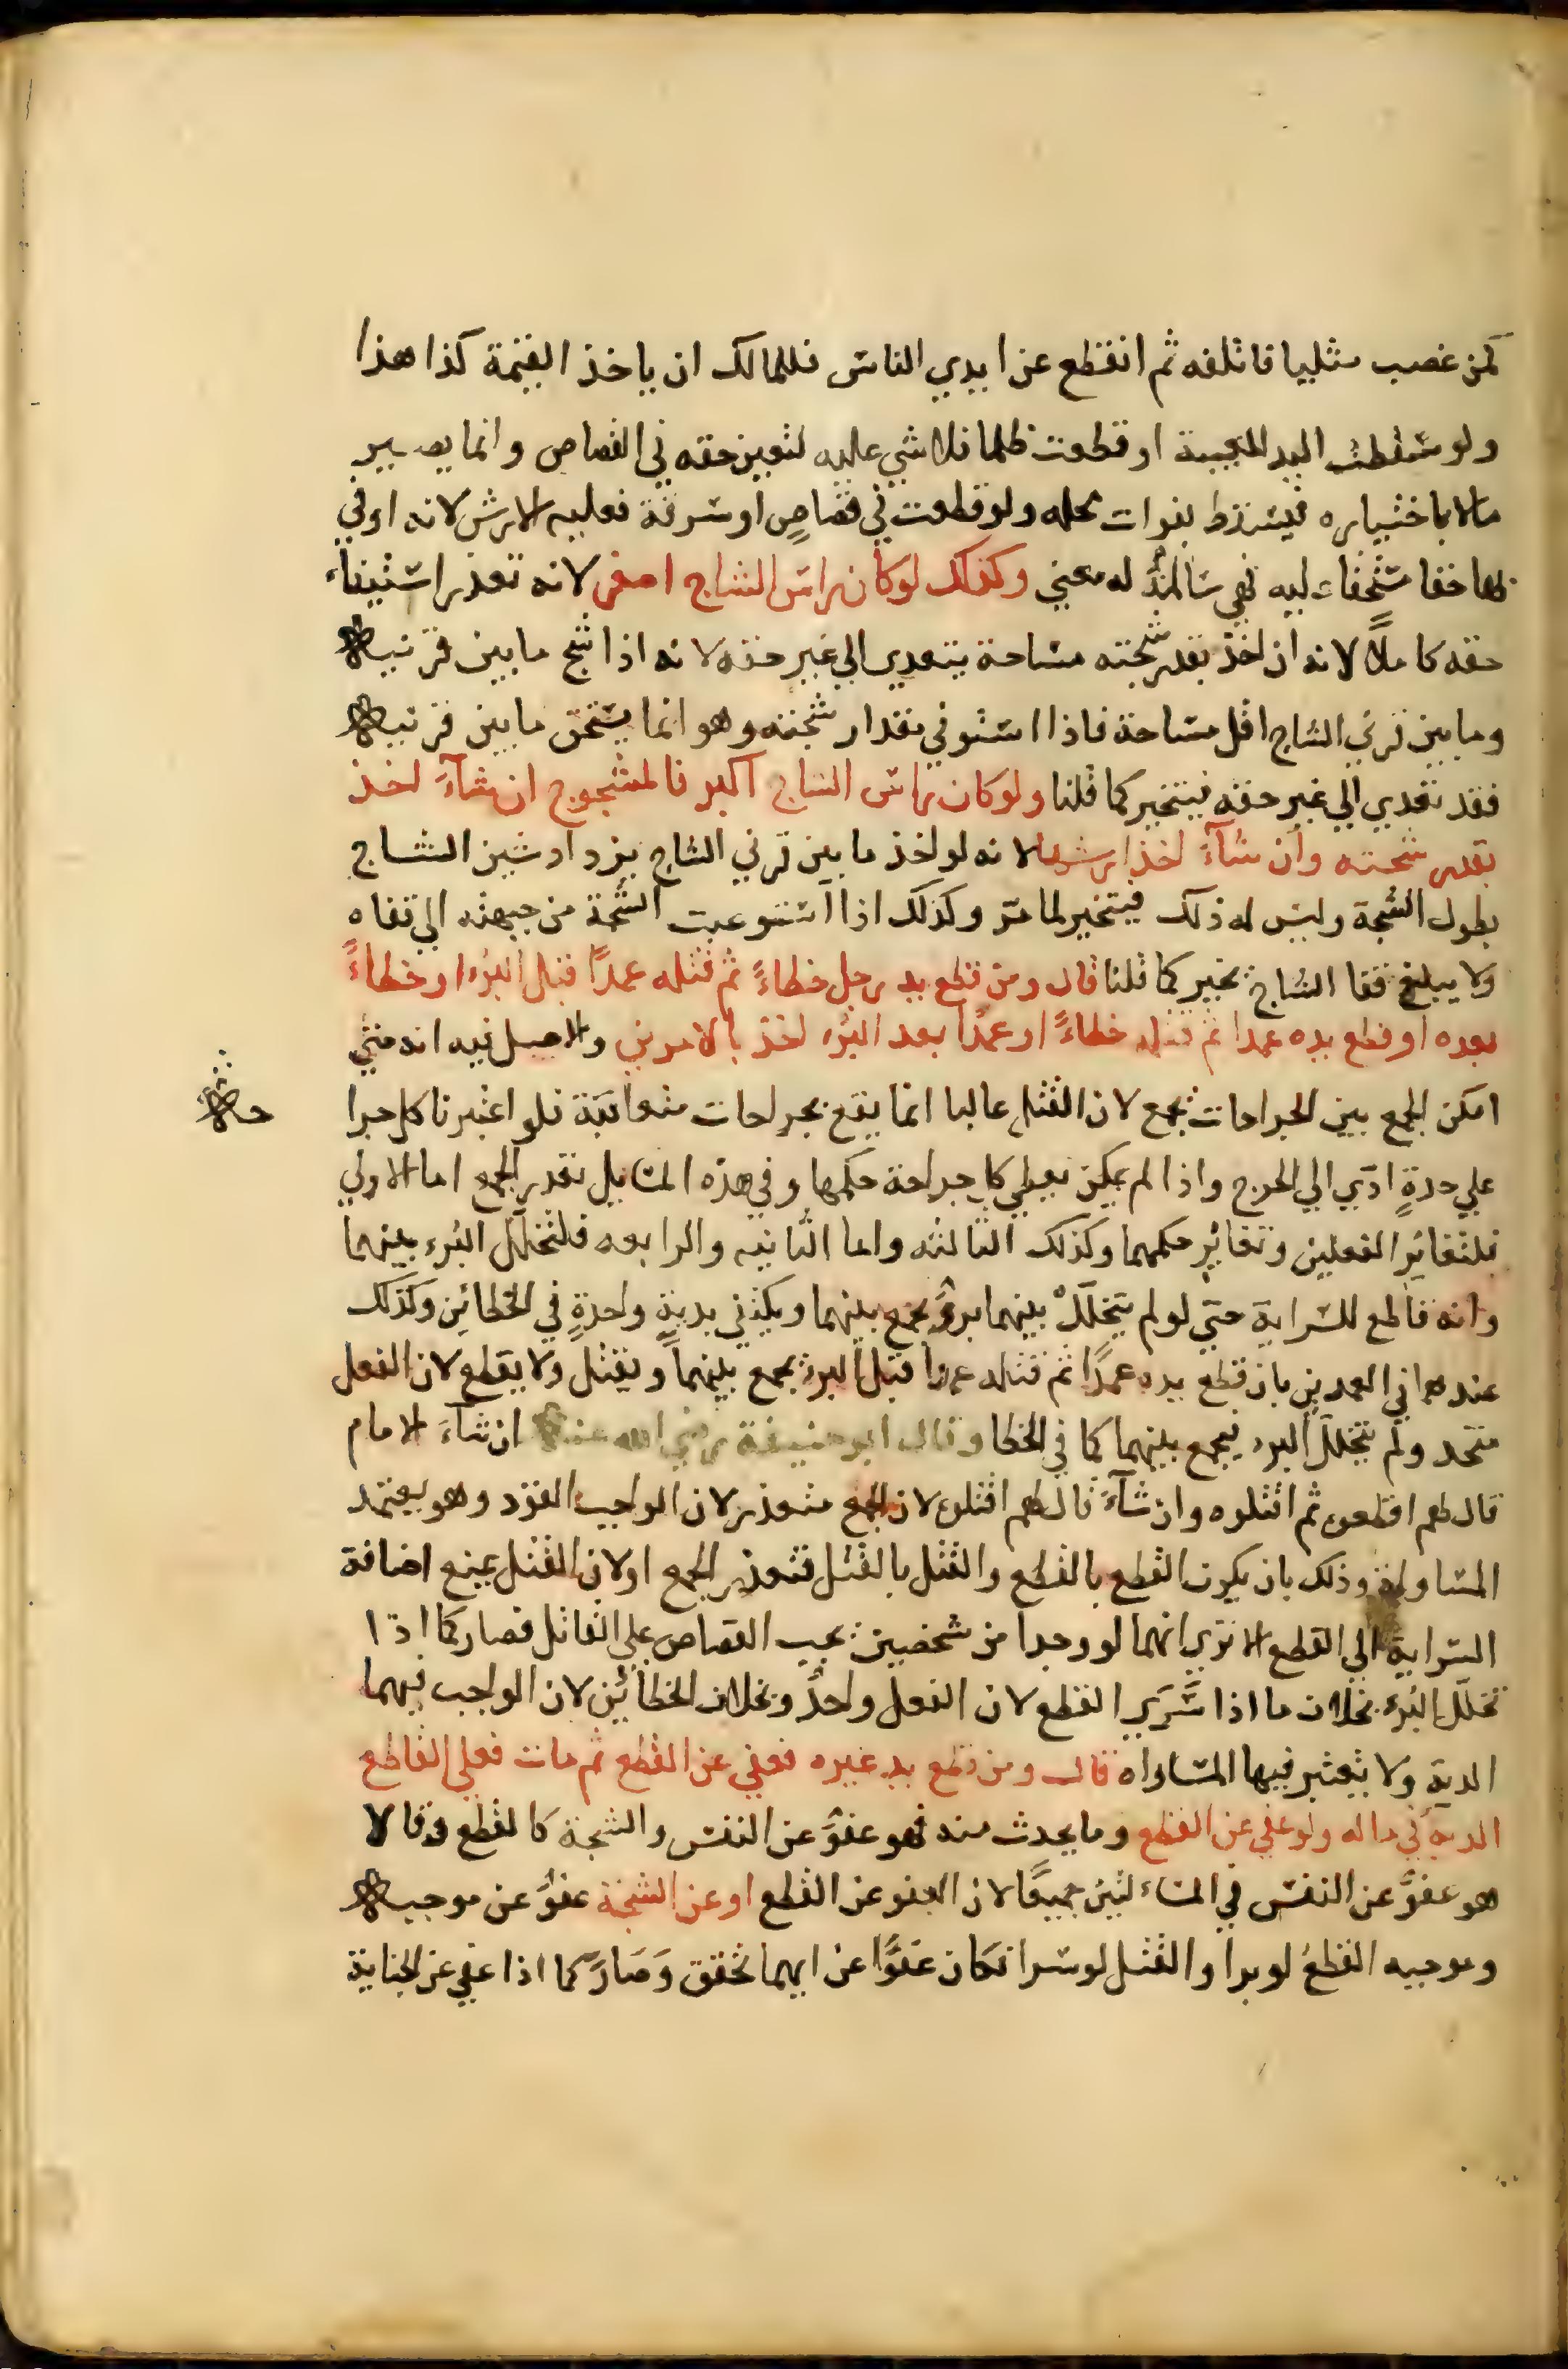 كمن غصب مثليا فاتلفه ثم انقطع عن ايدي الناس فللمالك ان ياخذ القيمة كذا هذا
ولو سقطت اليد المعيبة او قطعت ظلما فلا شي عليه لتعين حقه في القصاص وانما يصير
مالا باختياره فيسقط بفوات محله ولو قطعت في قصاصٍ او سرقة فعليه الارش لانه اوفي
بها حقا مستحقا عليه فهي سالمةٌ له معني وكذلك لو كان راس الشاج اصغر لانه تعذر استيفاء
حقه كاملًا لانه ان اخذ بقدر شجته مساحة يتعدي الي غير حقه لانه اذا شج ما بين قرنيه
وما بين قرني الشاج اقل مساحة فاذا استوفي مقدار شجته وهو انما يستحق ما بين قرنيه
فقد تعدي الي غير حقه فيتخير كما قلنا ولو كان راس الشاج اكبر فالمشجوج ان شآءَ اخذ
بقدر شجته وان شآءَ اخذ ارشها لانه لو اخذ ما بين قرني الشاج يزداد شين الشاج
بطول الشجة وليس له ذلك فيتخير لما مرّ وكذلك اذا استوعبت الشجة من جبهته الي قفاه
ولا يبلغ قفا الشاج يخير كما قلنا قال ومن قطع يد رجل خطاءً ثم قتله عمدًا قبل البُرء او خطاءً
بعده او قطع يده عمدا ثم قتله خطاءً او عمدًا بعد البُرء اخذ بالامرين والاصل فيه انه متي
امكن الجمع بين الجراحات يجمع لان القتل غالبا انما يقع بجراحات متعاقبة فلو اعتبرنا كل جرا
حة
علي حدةٍ ادّي الي الحرج واذا لم يمكن يعطي كل جراحة حكمها وفي هذه المسايل تعذر الجمع اما الاولي
فلتغايُر الفعلين وتغايُر حكمهما وكذلك الثالثه واما الثانيه والرابعه فلتخلّل البُرء بينهما
وانه قاطع للسراية حتي لو لم يتخلّلْ بينهما برؤٌ يجمع بينهما ويكتفي بديةٍ واحدةٍ في الخطائين وكذلك
عندهما في العمدين بان قطع يده عمدًا ثم قتله عمدا قبل البرء يجمع بينهما ويقتل ولا يقطع لان الفعل
متحد ولم يتخلل البرء فيجمع بينهما كما في الخطا وقال ابو حنيفة رضي الله عنه ان شآءَ الامام
قال لهم اقطعوه ثم اقتلوه وان شآءَ قال لهم اقتلوه لان الجمع متعذر لان الواجب القود وهو يعتمد
المساواة وذلك بان يكون القطع بالقطع والقتل بالقتل فتعذر الجمع او لان القتل يمنع اضافة
السراية الي القطع الا تري انهما لو وجدا من شخصين يجب القصاص علي القاتل فصار كما اذا
تخلّل البُرء بخلاف ما اذا سَرَي القطع لان الفعل واحدٌ وبخلاف الخطائَين لان الواجب فيهما
الدية ولا يعتبر فيها المساواه قال ومن قطع يد غيره فعفي عن القطع ثم مات فعلي القاطع
الدية في ماله ولو عفي عن القطع وما يحدث منه فهو عفوٌ عن النفس والشجة كالقطع وقالا
هو عفوٌ عن النفس في المسئلتين جميعًا لان العفو عن القطع او عن الشجة عفوٌ عن موجبه
وموجبه القطعُ لو برا والقتل لو سرا فكان عفوًا عن ايهما تحقق وَصَارَ كما اذا عفي عن الجناية